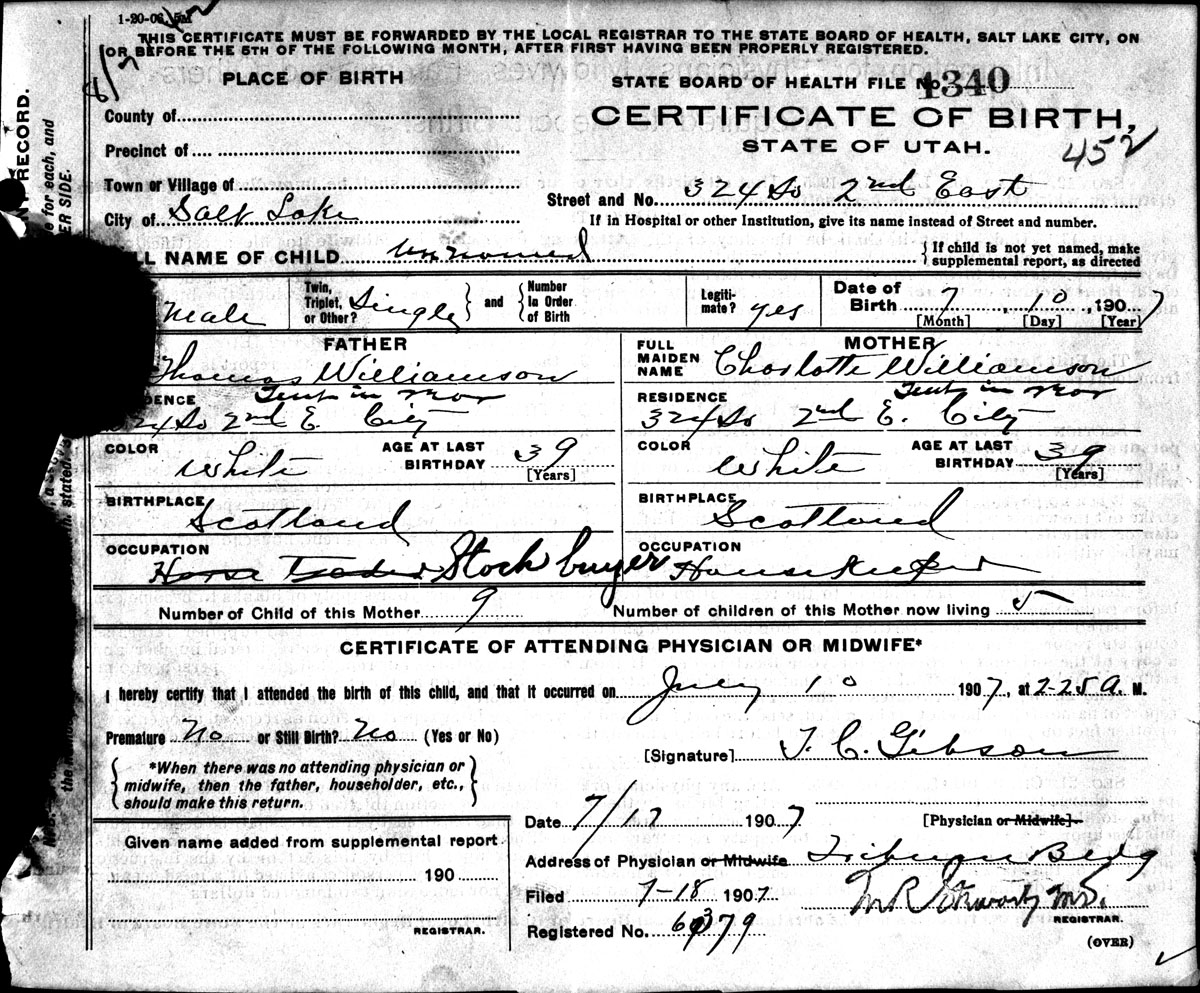 1-20-06. 5M
THIS CERTIFICATE MUST BE FORWARDED BY THE LOCAL REGISTRAR TO THE STATE BOARD OF HEALTH, SALT LAKE CITY, ON
OR BEFORE THE 5TH OF THE FOLLOWING MONTH, AFTER FIRST HAVING BEEN PROPERLY REGISTERED.
PLACE OF BIRTH
STATE BOARD OF HEALTH FILE No. 4340
County of
CERTIFICATE OF BIRTH,
Precinct of
STATE OF UTAH. 452
Town or Village of
Street and No. 324 So 2nd East
City of Salt Lake
If in Hospital or other Institution, give its name instead of Street and number.
LL NAME OF CHILD unnamed { If child is not yet named, make supplemental report, as directed
Male Twin, Triplet, or Other? Single } and { Number In Order of Birth Legiti-mate? yes Date of Birth 7, 10, 1907
[Month] [Day] [Year]
FATHER
Thomas Williamson
MOTHER
FULL MAIDEN NAME Charlotte Williamson
DENCE
324 So 2nd E. City
RESIDENCE
324 So 2nd E. City
COLOR White AGE AT LAST BIRTHDAY 39 [Years]
COLOR White AGE AT LAST BIRTHDAY 39 [Years]
BIRTHPLACE Scotland
BIRTHPLACE Scotland
OCCUPATION Horse Trader Stock buyer
OCCUPATION Housekeeper
Number of Child of this Mother 9 Number of children of this Mother now living 5
CERTIFICATE OF ATTENDING PHYSICIAN OR MIDWIFE*
I hereby certify that I attended the birth of this child, and that it occurred on July 10 1907, at 2-25 A. M.
Premature No or Still Birth? No (Yes or No)
[Signature] T. C. Gibson
{ *When there was no attending physician or midwife, then the father, householder, etc., should make this return. }
Date 7/17 1907 [Physician or Midwife]
Given name added from supplemental report
190
REGISTRAR.
Address of Physician or Midwife Tribune Bldg
Filed 7-18 1907
REGISTRAR.
Registered No.
(OVER)
RECORD.
e for each, and
ER SIDE.